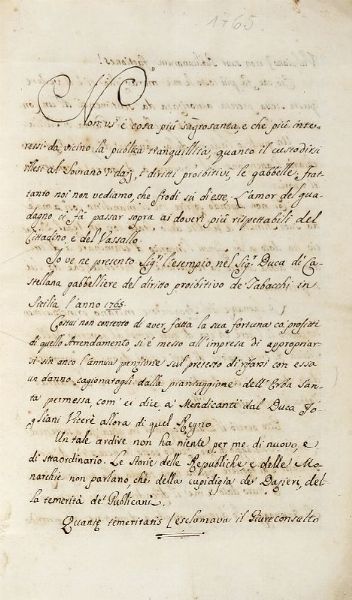 1765
Non v'è cosa più sagrosanta, e che più inte-
ressi da vicino la publica tranquillità, quanto il custodirsi
illesi al Sovrano i dazj, i dritti proibitivi, le gabbelle, frat-
tanto noi non vediamo che frodi sù di esse. L'amor del gua-
dagno ci fà passar sopra ai doveri più rispettabili del
Cittadino e del Vassallo.
Io ve ne presento Sig.ri l'esempio nel Sig.r Duca di Ca-
stellana gabbelliere del diritto proibitivo de' Tabacchi in
Sicilia l'anno 1765.
Costui non contento di aver fatta la sua fortuna co' profitti
di quello Arrendamento si è messo all'impresa di appropriar-
si anco l'annua pensione sul pretesto di rifarsi con essa
un danno cagionatogli dalla piantaggione dell'Erba San-
ta permessa, com'ei dice, a' Mendicanti dal Duca Fo-
gliani Vicerè allora di quel Regno.
Un tale ardire non ha niente per me di nuovo, e
di straordinario. Le Storie delle Repubbliche e delle Mo-
narchie non parlano, che della cupidigia de' Dazieri, del-
la temerità de' Publicani.
Quantę temeritatis (esclamava il Giureconsulto